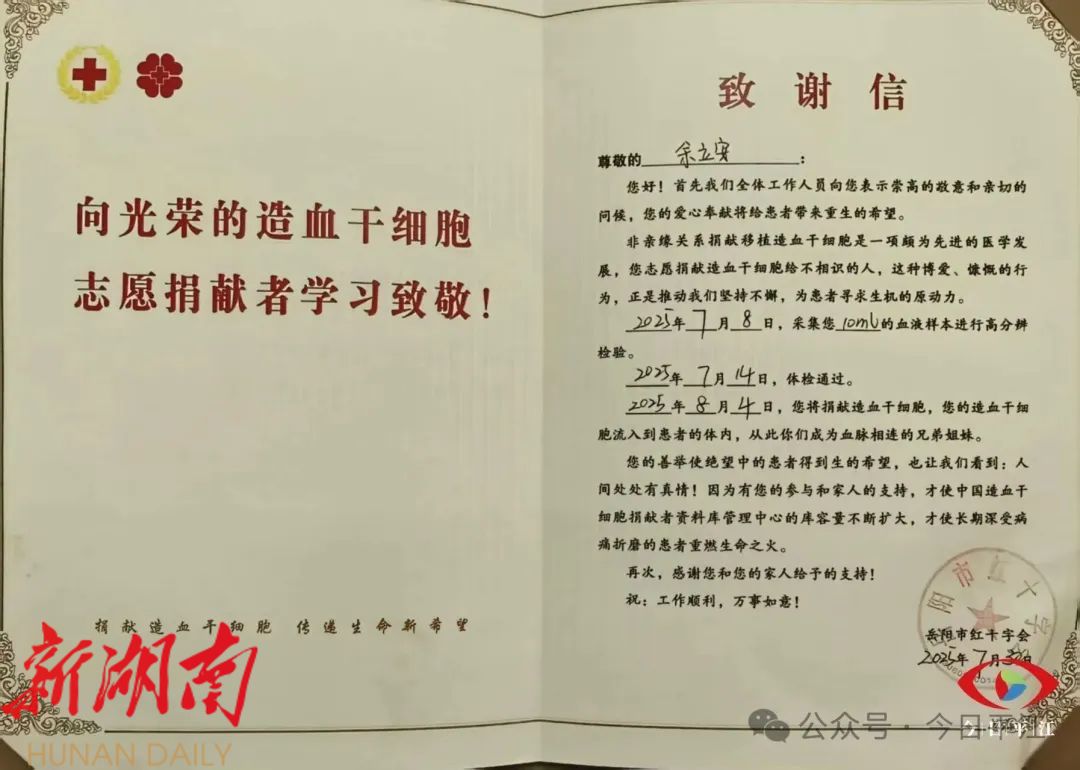 向光荣的造血干细胞
志愿捐献者学习致敬！
捐献造血干细胞 传递生命新希望
致谢信
尊敬的余立安：
您好！首先我们全体工作人员向您表示崇高的敬意和亲切的
问候，您的爱心奉献将给患者带来重生的希望。
非亲缘关系捐献移植造血干细胞是一项颇为先进的医学发
展，您志愿捐献造血干细胞给不相识的人，这种博爱、慷慨的行
为，正是推动我们坚持不懈，为患者寻求生机的原动力。
2025年7月8日，采集您10ml的血液样本进行高分辨
检验。
2025年7月14日，体检通过。
2025年8月4日，您将捐献造血干细胞，您的造血干细
胞流入到患者的体内，从此你们成为血脉相连的兄弟姐妹。
您的善举使绝望中的患者得到生的希望，也让我们看到：人
间处处有真情！因为有您的参与和家人的支持，才使中国造血干
细胞捐献者资料库管理中心的库容量不断扩大，才使长期深受病
痛折磨的患者重燃生命之火。
再次，感谢您和您的家人给予的支持！
祝：工作顺利，万事如意！
岳阳市红十字会
2025年7月日
新湖南
HUNAN DAILY
公众号·今日平江
今日平江